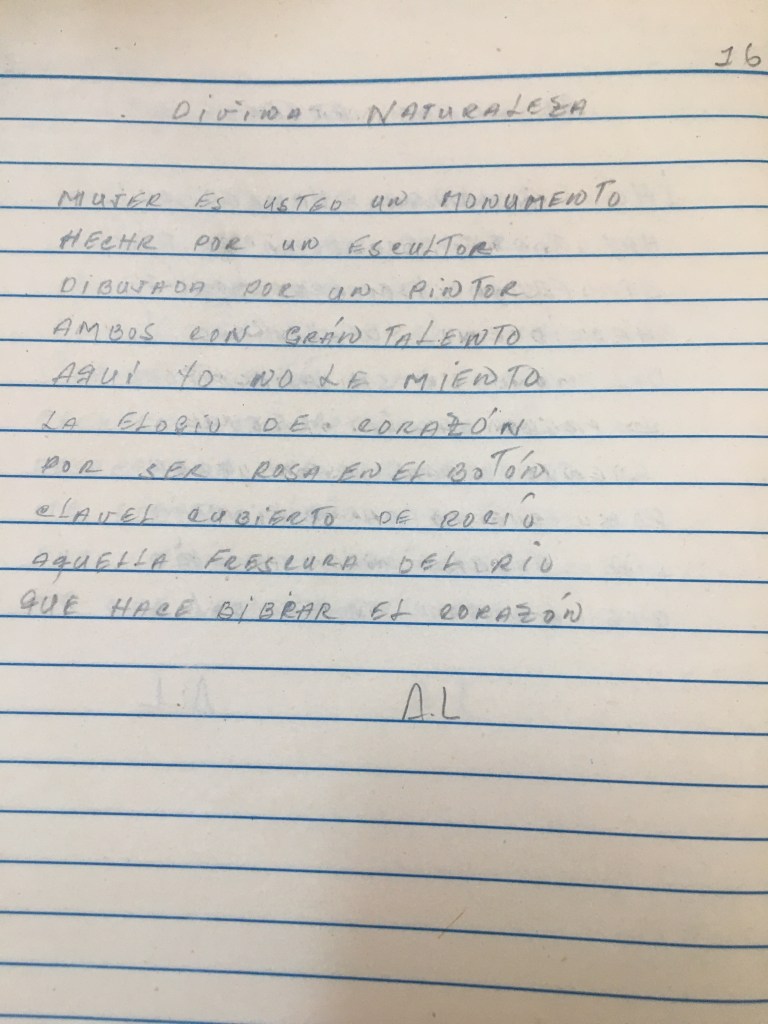 16
Divina NATURALEZA
MUJER ES USTED UN MONUMENTO
HECHA POR UN ESCULTOR
DIBUJADA POR UN PINTOR
AMBOS CON GRÁN TALENTO
AQUÍ YO NO LE MIENTO
LA ELOGIO DE CORAZÓN
POR SER ROSA EN EL BOTÓN
CLAVEL CUBIERTO DE ROCÍO
AQUELLA FRESCURA DEL RÍO
QUE HACE BIBRAR EL CORAZÓN
A.L